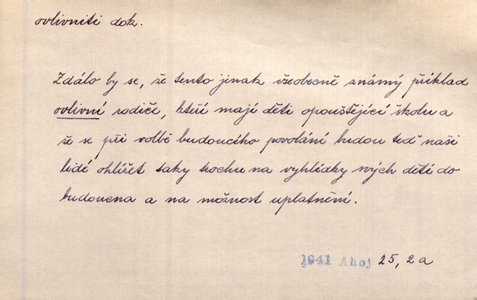 ovlivniti dok.
Zdálo by se, že tento jinak všeobecně známý příklad
ovlivní rodiče, kteří mají děti opouštějící školu a
že se při volbě budoucího povolání budou teď naši
lidé ohlížet taky trochu na vyhlídky svých dětí do
budoucna a na možnost uplatnění.
1941 Ahoj 25, 2a